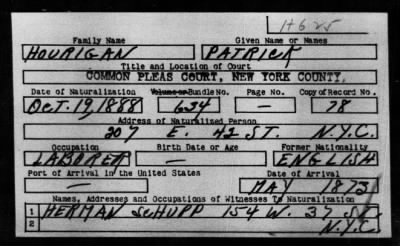 H625
Family Name Given Name or Names
HOURIGAN PATRICK
Title and Location of Court
COMMON PLEAS COURT, NEW YORK COUNTY.
Date of Naturalization Volume or Bundle No. Page No. Copy of Record No.
Oct. 19, 1888 634 — 78
Address of Naturalized Person
207 E. 42 ST. N.Y.C.
Occupation Birth Date or Age Former Nationality
LABORER — ENGLISH
Port of Arrival in the United States Date of Arrival
— MAY 1873
Names, Addresses and Occupations of Witnesses To Naturalization
1 HERMAN SCHUPP 154 W. 37 ST.
2 N.Y.C